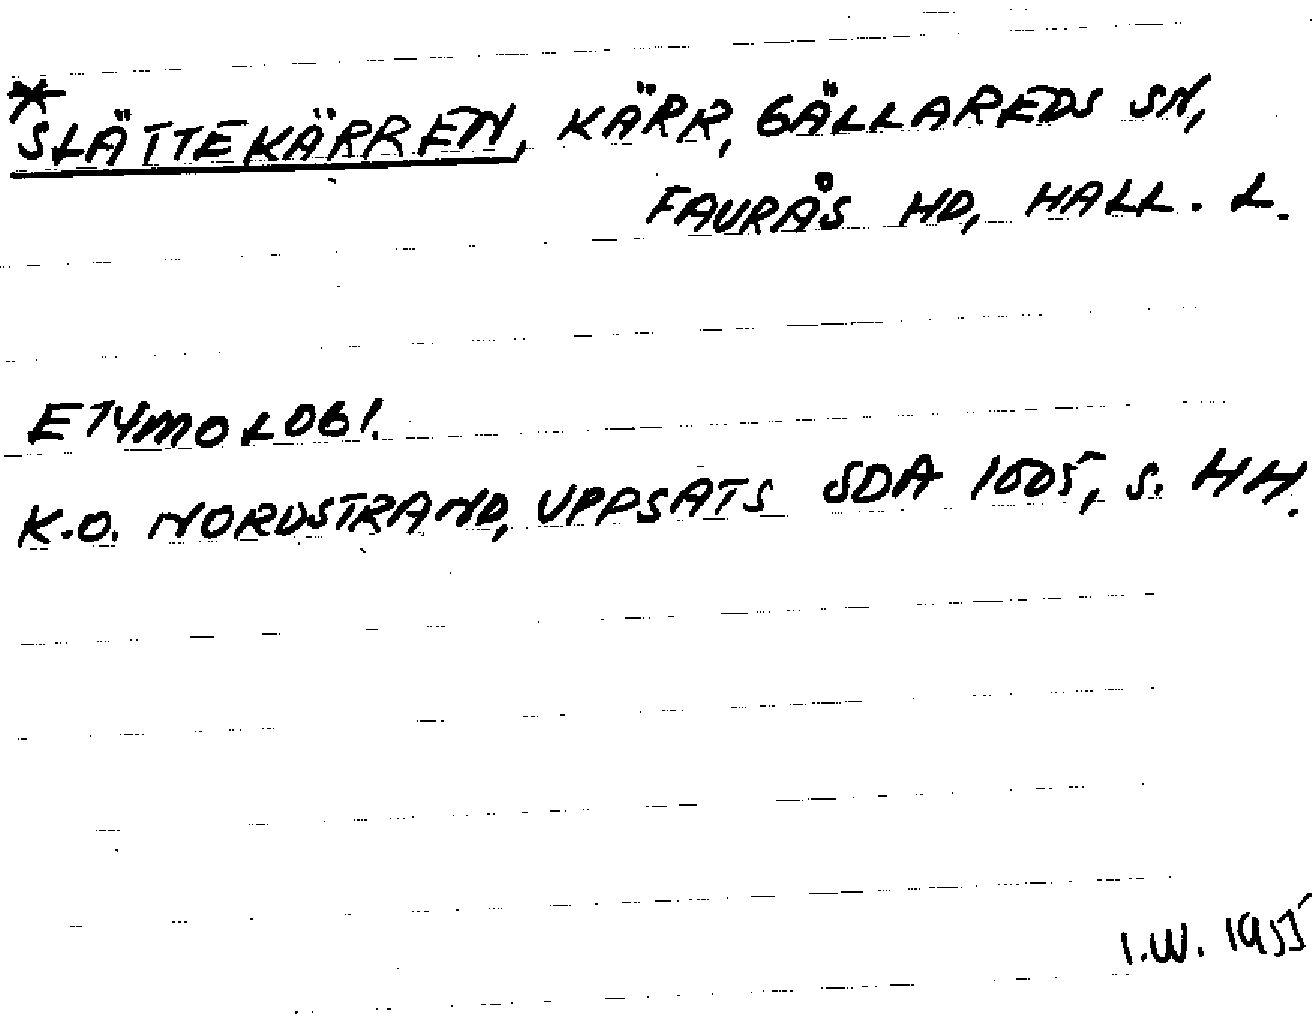 *SLÄTTEKÄRREN, KÄRR, GÄLLAREDS SN,
FAURÅS HD, HALL. L.
ETYMOLOGI.
K.O. NORDSTRAND, UPPSATS SDA 1005, S. 44.
I.W. 1955